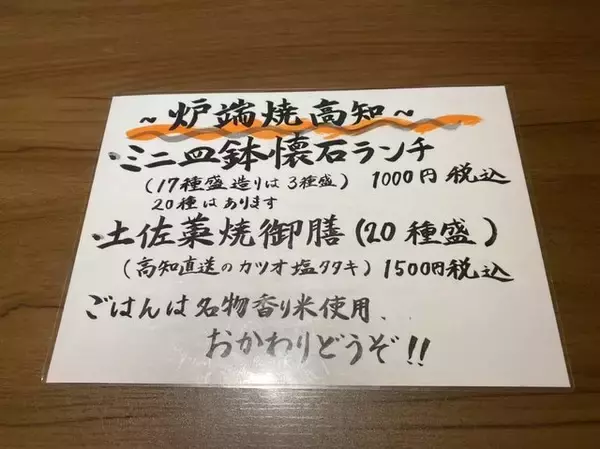 ~炉端焼高知~
・ミニ皿鉢懐石ランチ
(17種盛造りは3種盛) 1000円税込
20種はあります
・土佐藁焼御膳(20種盛)
(高知直送のカツオ塩タタキ) 1500円税込
ごはんは名物香り米使用、
おかわりどうぞ!!